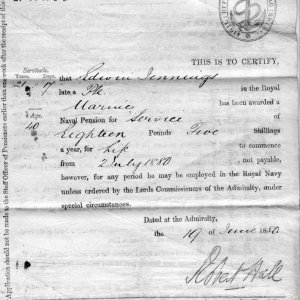 THIS IS TO CERTIFY,
Servitude.
Years. Days.
21 7 that Edwin Jennings
late a Pte. in the Royal
Marines has been awarded a
Age
40 Naval Pension for Service of
Eighteen Pounds Five Shillings
a year, for life to commence
from 2 July 1880 not payable,
however, for any period he may be employed in the Royal Navy
unless ordered by the Lords Commissioners of the Admiralty, under
special circumstances.
Dated at the Admiralty,
the 19 of June 1880
Robert Hall
Application should not be made to the Staff Officer of Pensioners earlier than one week after the receipt of this